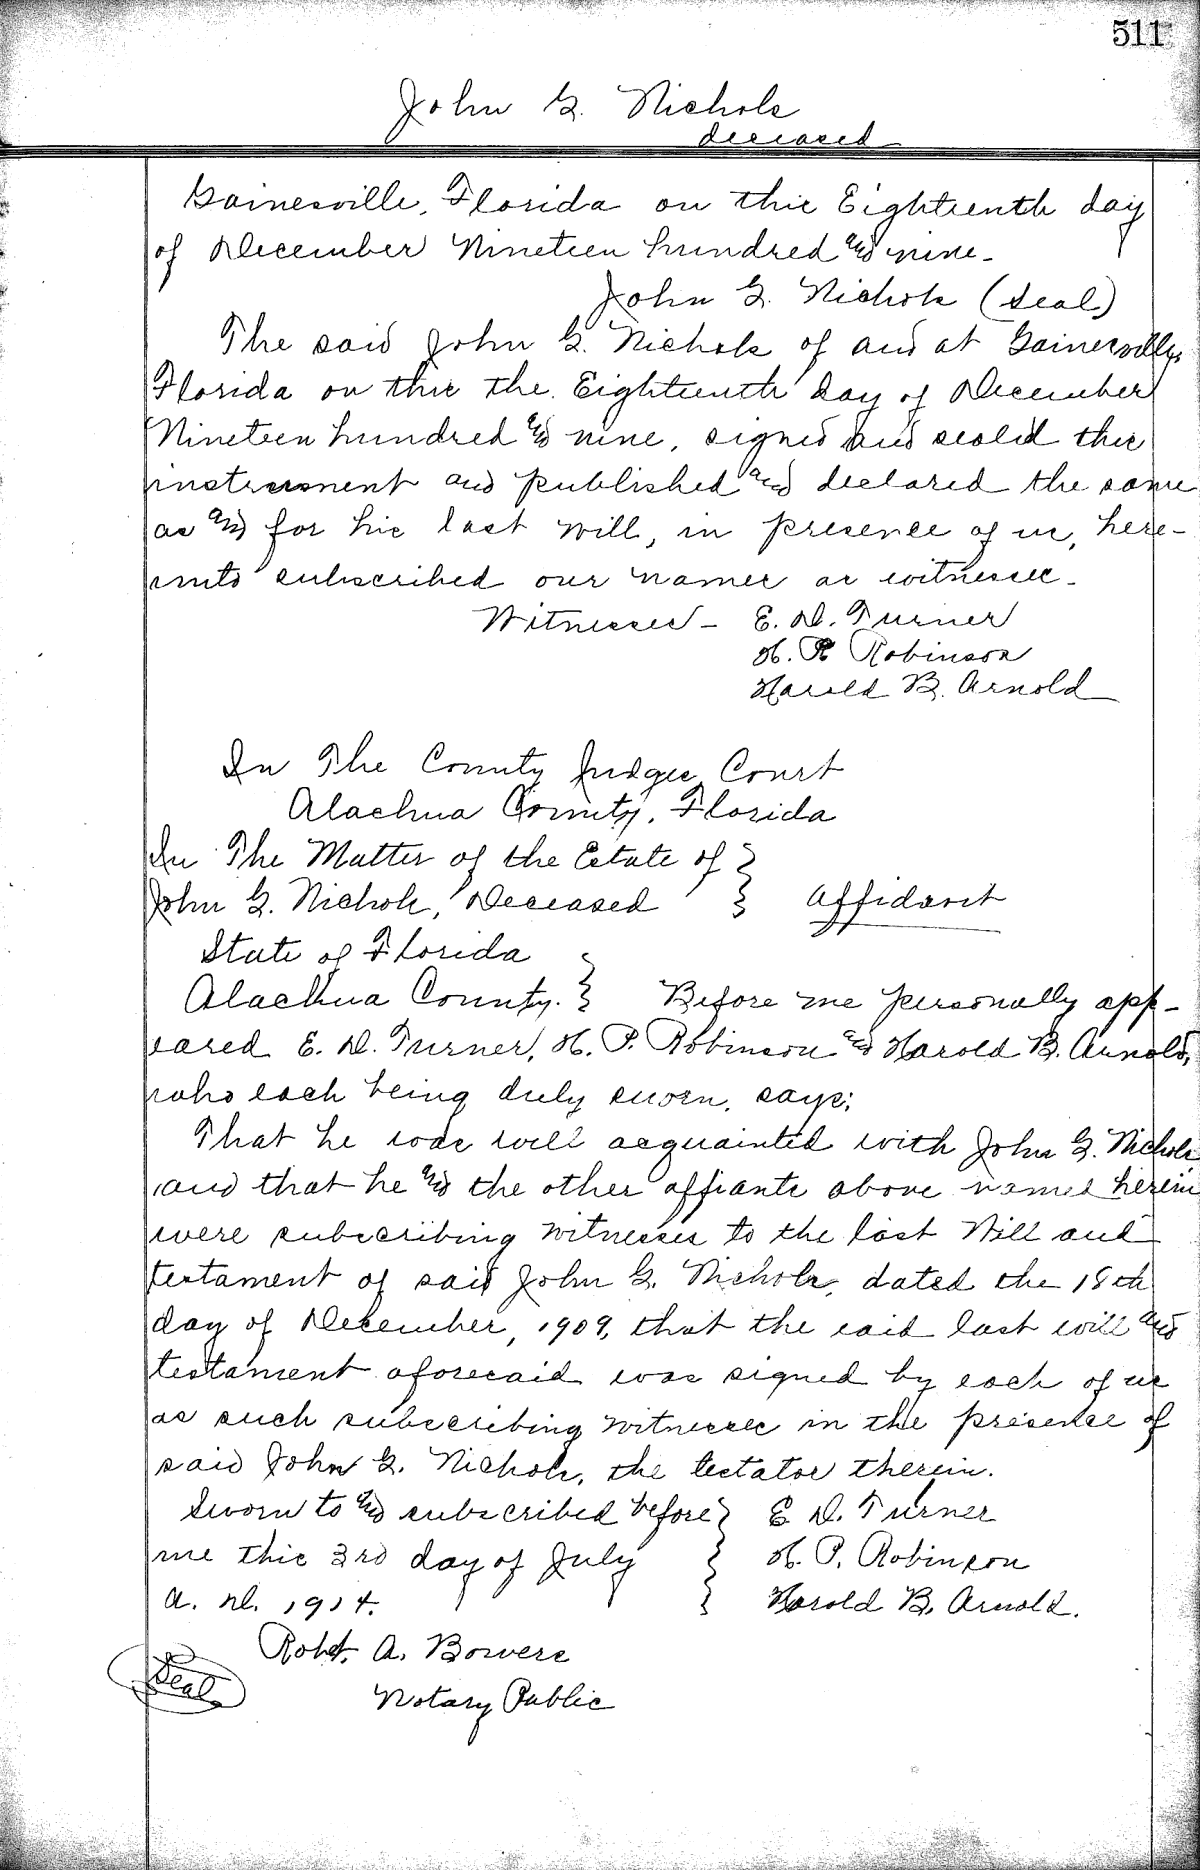 511
John G. Nichols
deceased
Gainesville, Florida on this Eighteenth day
of December Nineteen hundred and nine.
John G. Nichols (Seal)
The said John G. Nichols of and at Gainesville,
Florida on this the Eighteenth day of December
Nineteen hundred and nine, signed and sealed this
instrument and published and declared the same
as and for his last will, in presence of us, here-
unto subscribed our names as witnesses.
Witnesses - E. D. Turner
H. P. Robinson
Harold B. Arnold
In The County Judges Court
Alachua County, Florida
In The Matter of the Estate of }
John G. Nichols, Deceased } Affidavit
State of Florida }
Alachua County. } Before me personally app-
eared E. D. Turner, H. P. Robinson and Harold B. Arnold,
who each being duly sworn, says;
That he was well acquainted with John G. Nichols
and that he and the other affiants above named herein
were subscribing witnesses to the last Will and
testament of said John G. Nichols, dated the 18th
day of December, 1909, that the said last will and
testament aforesaid was signed by each of us
as such subscribing witnesses in the presence of
said John G. Nichols, the testator therein.
Sworn to and subscribed before } E. D. Turner
me this 3rd day of July } H. P. Robinson
A. D. 1914. } Harold B. Arnold.
Robt. A. Bowers
Seal
Notary Public